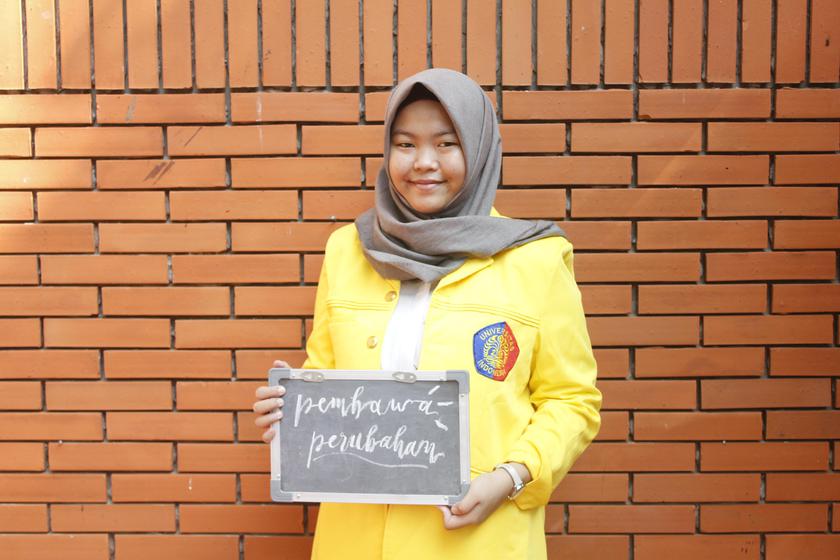 UNIVERSITAS
INDONESIA
pembawa
perubahan